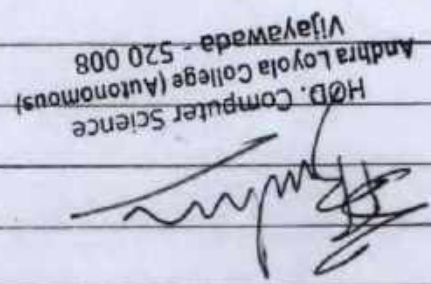 HOD. Computer Science
Andhra Loyola College (Autonomous)
Vijayawada - 520 008